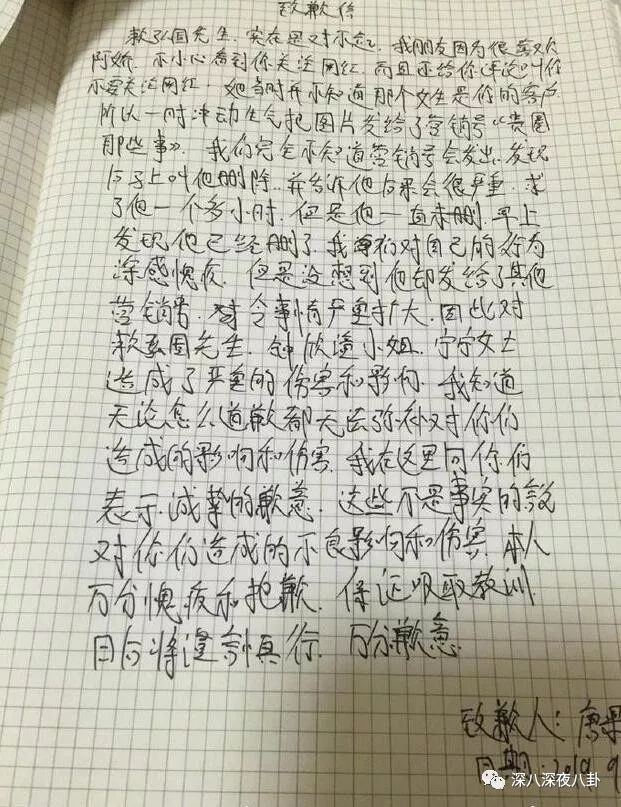 致歉信
赖弘国先生，实在是对不起，我朋友因为很喜欢
阿娇，不小心看到你关注网红，而且还给你评论叫你
不要关注网红，她当时并不知道那个女生是你的客户
所以一时冲动生气把图片发给了营销号《贵圈
那些事》，我们完全不知道营销号会发出，发现
后马上叫他删除，并告诉他后果会很严重，求
了他一个多小时，但是他一直未删，早上
发现他已经删了，我们对自己的行为
深感愧疚，但是没想到他却发给了其他
营销号，令事情严重扩大，因此对
赖弘国先生，钟欣潼小姐，宁宁女士
造成了严重的伤害和影响，我知道
无论怎么道歉都无法弥补对你们
造成的影响和伤害，我在这里向你们
表示诚挚的歉意，这些不是事实的说
对你们造成的不良影响和伤害，本人
万分愧疚和抱歉，保证吸取教训
日后将谨言慎行，万分歉意.
致歉人：唐果
日期：2019.9
深八深夜八卦